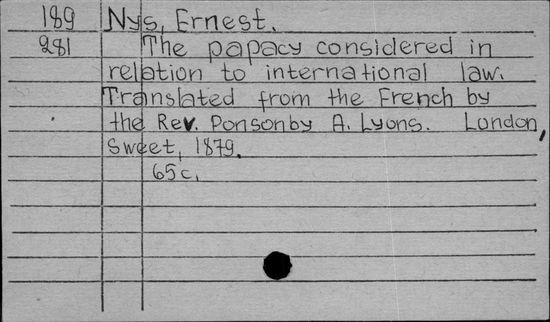 189 Nys, Ernest.
281 The papacy considered in
relation to international law.
Translated from the French by
the Rev. Ponsonby A. Lyons. London,
Sweet, 1879.
65c.